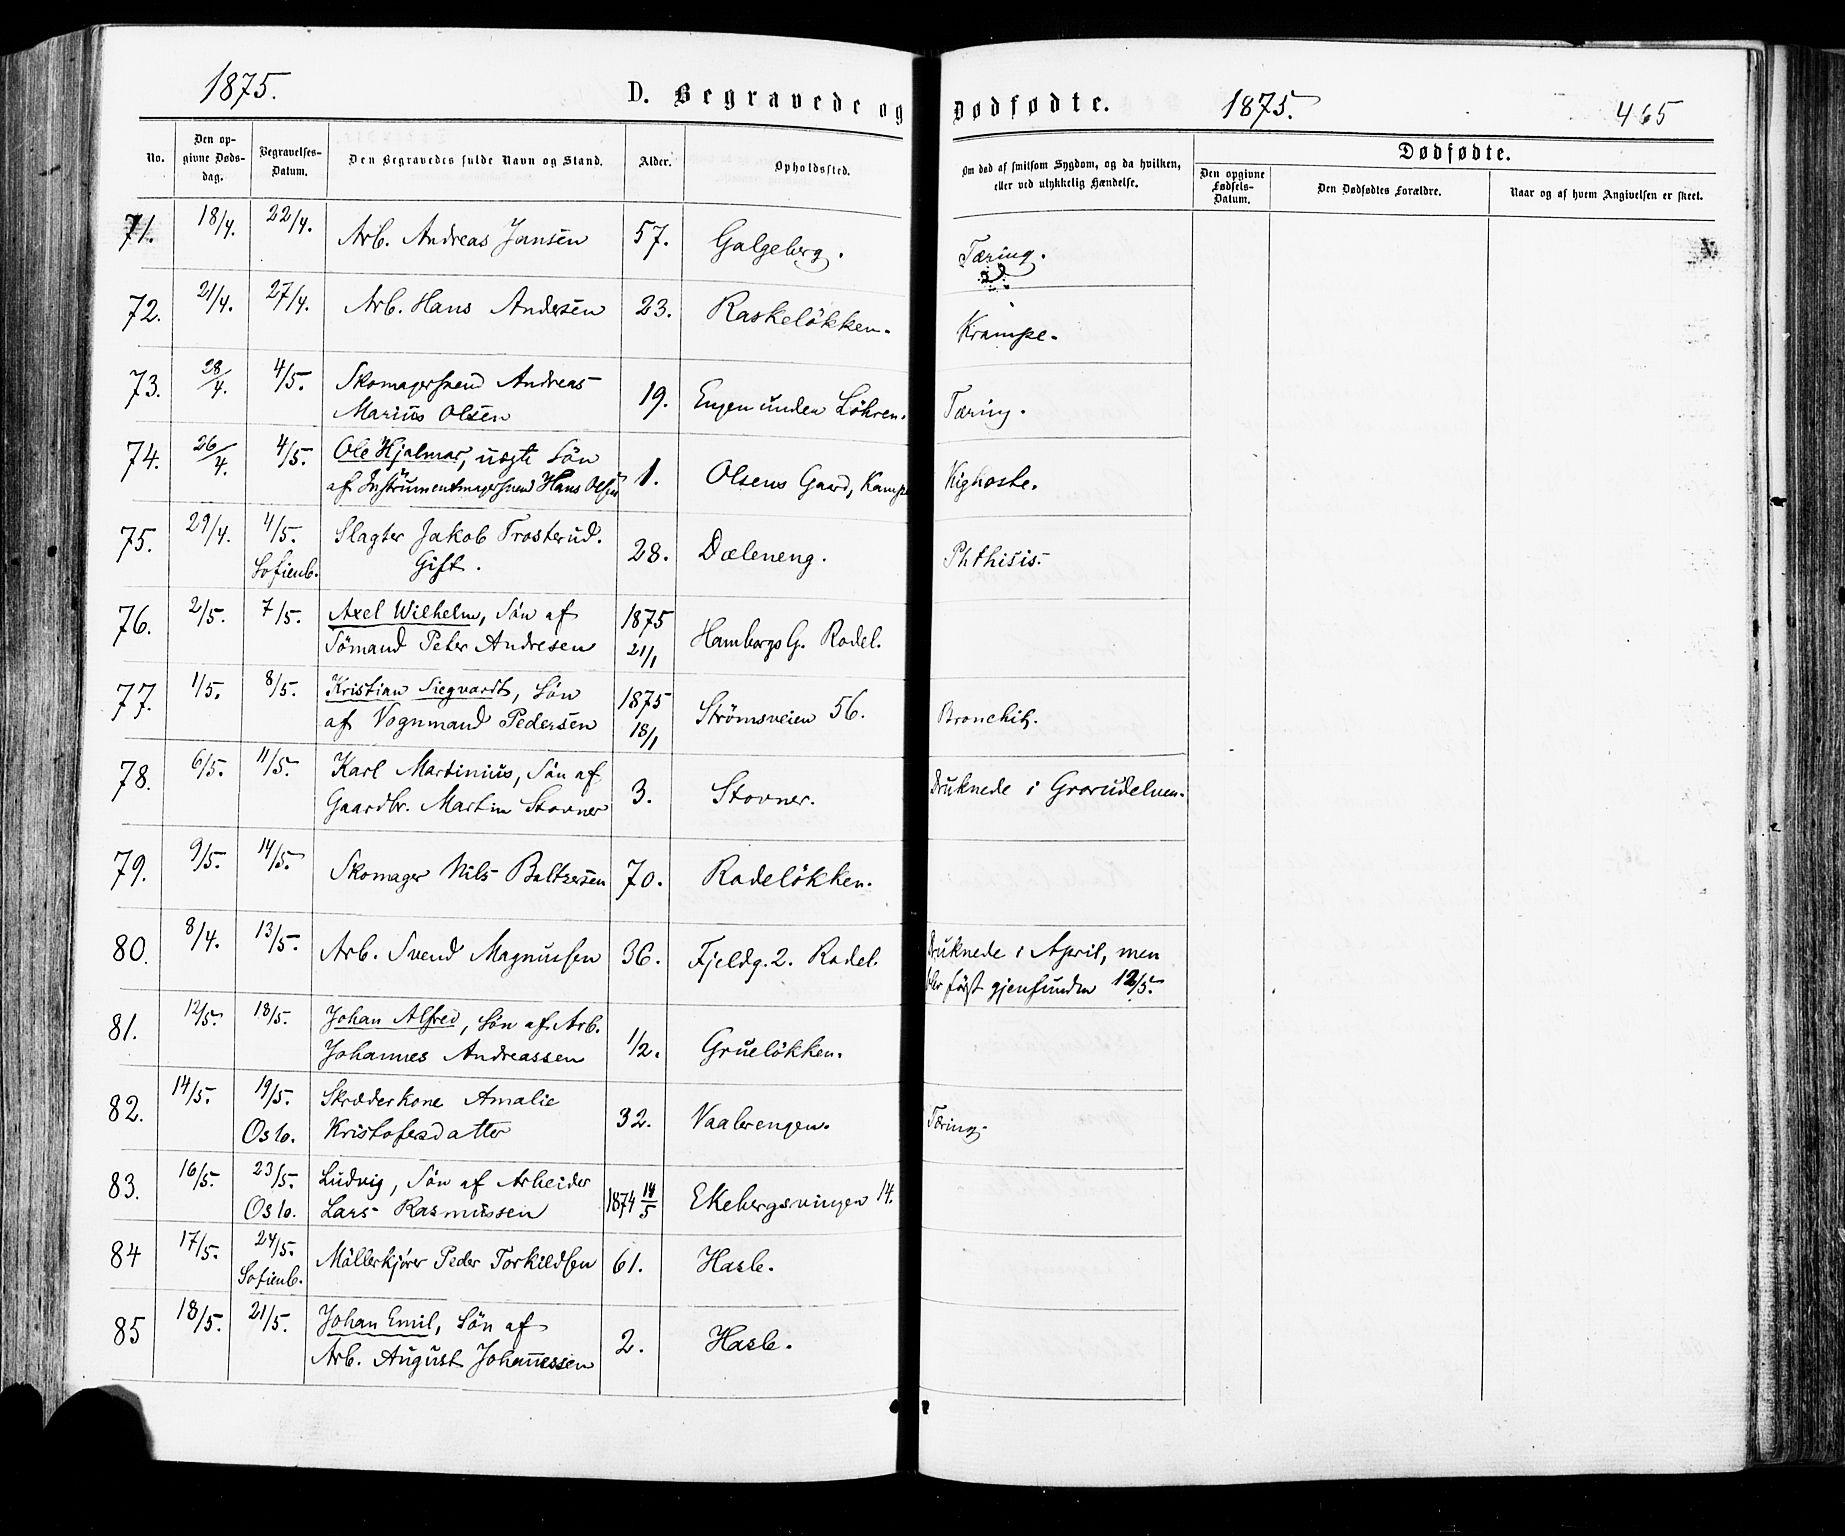 1875. D. Begravede og Dødfødte. 1875. 465
No. Den opgivne Dødsdag. Begravelses-Datum. Den Begravedes fulde Navn og Stand. Alder. Opholdssted. Om død af smitsom Sygdom, og da hvilken, eller ved ulykkelig Hændelse. Dødfødte.
Den opgivne Fødsels-Datum. Den Dødfødtes Forældre. Naar og af hvem Angivelsen er skeet.
71. 18/4. 22/4. Arb. Andreas Jansen 57. Galgeberg. Tæring.
72. 21/4. 27/4. Arb. Hans Andersen 23. Raskeløkken. Krampe.
73. 28/4. 4/5. Skomagersvend Andreas
Marius Olsen 19. Engen under Løhren. Tæring.
74. 26/4. 4/5. Ole Hjalmar, uægte Søn
af Instrumentmagersvend Hans Olsen 1. Olsens Gaard, Kampe Kighoste.
75. 29/4. 4/5. Slagter Jakob Trosterud.
Sofienb. Gift. 28. Dæleneng. Phthisis.
76. 2/5. 7/5. Axel Wilhelm, Søn af 1875
Sømand Peter Andresen 21/1 Hamborgs G. Rodel.
77. 1/5. 8/5. Kristian Siegvardt, Søn 1875
af Vognmand Pedersen 18/1 Strømsveien 56. Bronchit.
78. 6/5. 11/5. Karl Martinius, Søn af
Gaardbr. Martin Stovner 3. Stovner. Druknede i Grorudelven.
79. 9/5. 14/5. Skomager Nils Baltzersen 70. Rodeløkken.
80. 8/4. 13/5. Arb. Svend Magnussen 36. Fjeldg. 2. Rodel. Druknede i April, men
blev først gjenfunden 12/5.
81. 12/5. 18/5. Johan Alfred, Søn af Arb.
Johannes Andreassen 1/2. Grueløkken.
82. 14/5. 19/5. Skræderkone Amalie
Oslo. Kristofersdatter 32. Vaalerengen. Tæring.
83. 16/5. 23/5. Ludvig, Søn af Arbeider
Oslo. Lars Rasmussen 1874 14/5 Ekebergsvingen 14.
84 17/5. 24/5.
Sofienb. Møllerkjører Peder Torkildsen 61. Hasle.
85 18/5. 21/5. Johan Emil, Søn af
Arb. August Johannessen 2. Hasle.